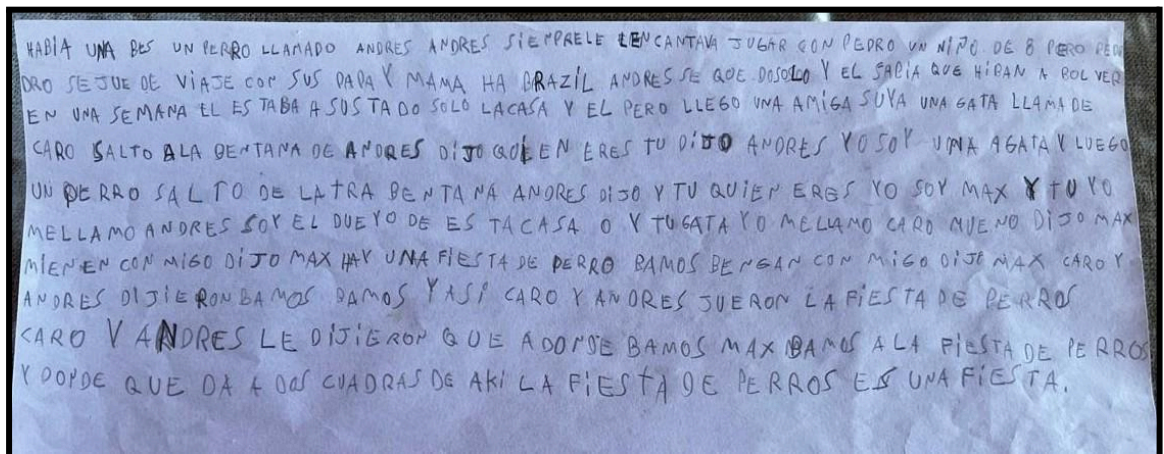 HABÍA UNA BES UN PERRO LLAMADO ANDRES ANDRES SIEMPRELE ENCANTAVA JUGAR CON PEDRO UN NIÑO DE 8 PERO PE
DRO SEJUE DE VIAJE CON SUS PAPA Y MAMA HA BRAZIL ANDRES SE QUE DOSOLO Y EL SABIA QUE HIBAN A BOL VER
EN UNA SEMANA EL ES TABA A SUS TADO SOLO LACASA Y EL PERO LLEGO UNA AMIGA SUYA UNA GATA LLAMADE
CARO SALTO ALA BENTANA DE ANDRES DIJO QUIEN ERES TU DIJO ANDRES YO SOY UNA AGATA Y LUEGO
UN PERRO SALTO DE LATRA BENTANA ANDRES DIJO Y TU QUIEN ERES YO SOY MAX Y TU YO
MELLAMO ANDRES SOY EL DUEYO DE ES TACASA O Y TUGATA YO MELLAMO CARO MUENO DIJO MAX
MIENEN CON MIGO DIJO MAX HAY UNA FIESTA DE PERRO BAMOS BENGAN CON MIGO DIJO MAX CARO Y
ANDRES DIJIERON BAMOS BAMOS Y ASÍ CARO Y ANDRES JUERON LA FIESTA DE PERROS
CARO Y ANDRES LE DIJIERON QUE ADONDE BAMOS MAX BAMOS A LA FIESTA DE PERROS
Y DONDE QUE DA A DOS CUADRAS DE AKÍ LA FIESTA DE PERROS ES UNA FIESTA.